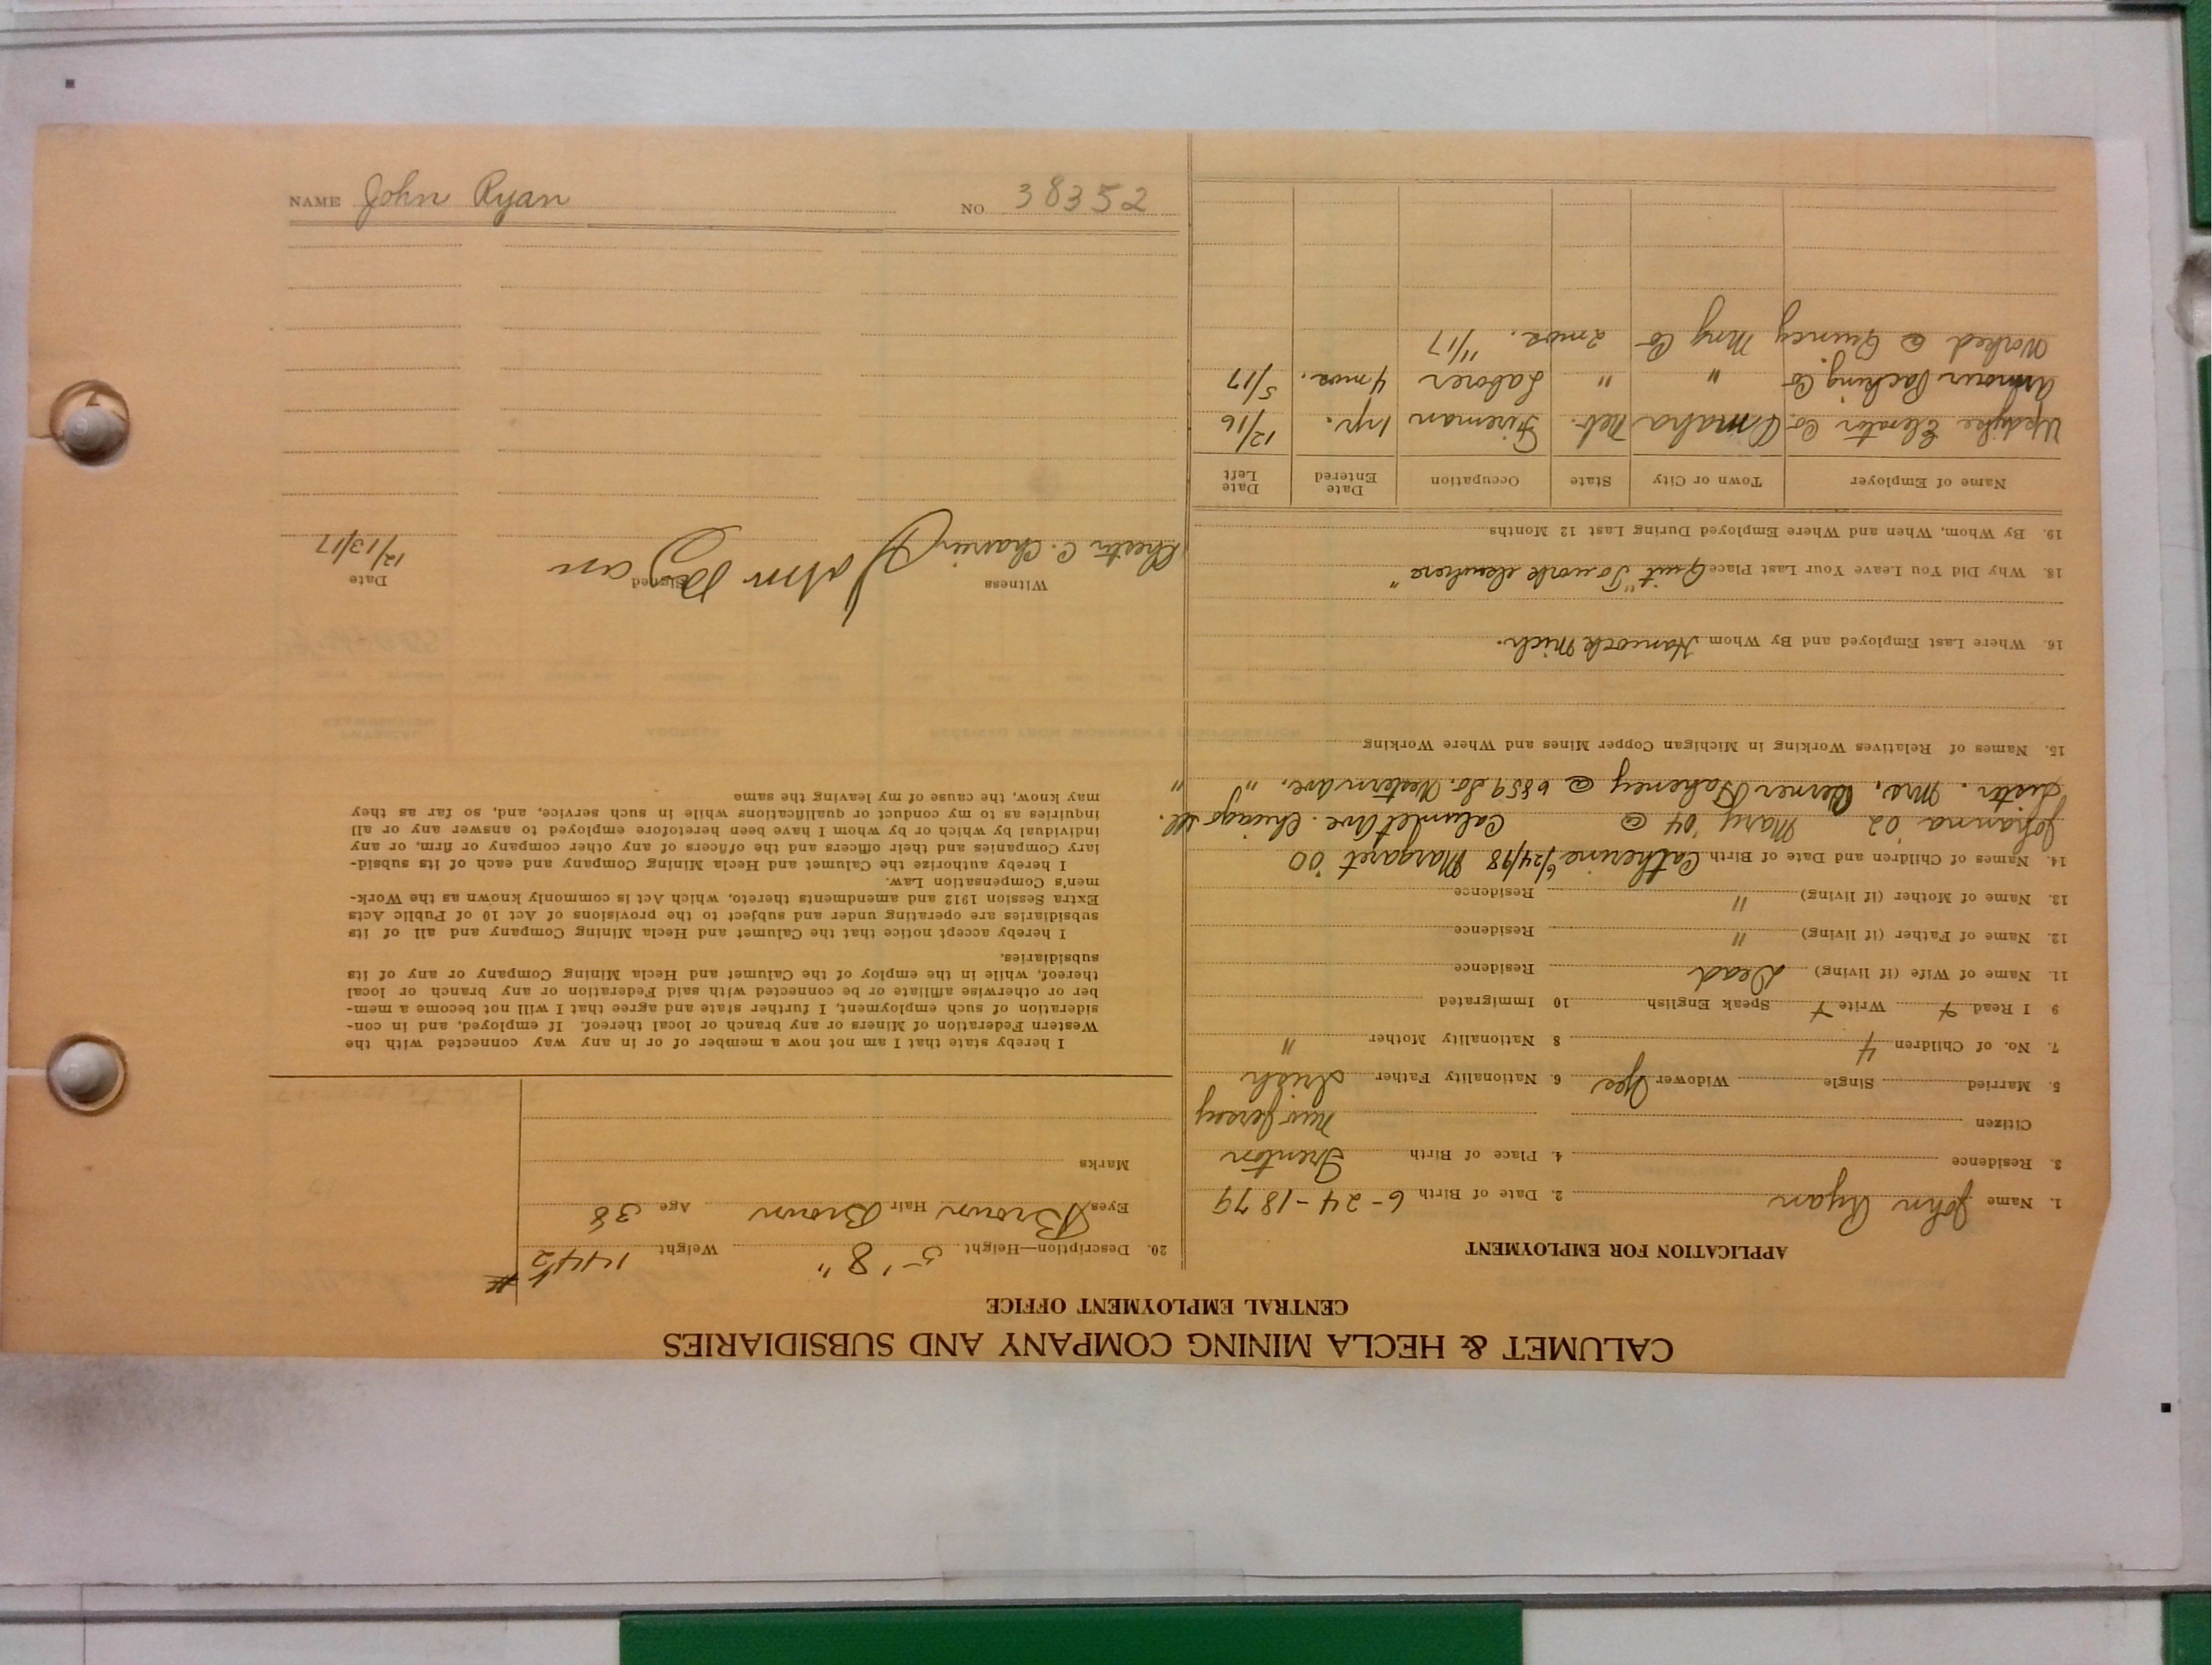 CALUMET & HECLA MINING COMPANY AND SUBSIDIARIES
CENTRAL EMPLOYMENT OFFICE
APPLICATION FOR EMPLOYMENT
1. Name John Ryan 2. Date of Birth 6-24-1879
3. Residence 4. Place of Birth Trenton
Citizen New Jersey
5. Married Single Widower Yes 6. Nationality Father Irish
7. No. of Children 4 8 Nationality Mother "
9 I Read + Write + Speak English 10 Immigrated
11. Name of Wife (if living) Dead Residence
12. Name of Father (if living) " Residence
13. Name of Mother (if living) " Residence
14. Names of Children and Date of Birth Catherine 6/24/98 Margaret '00
Johanna '02 Mary '04 @ Calumet Ave. Chicago Ill.
Sister. Mrs. Haheney @ 6859 So. Western Ave. " "
15. Names of Relatives Working in Michigan Copper Mines and Where Working
16. Where Last Employed and By Whom Hancock Mich.
18. Why Did You Leave Your Last Place Quit "To work elsewhere"
19. By Whom, When and Where Employed During Last 12 Months
Name of Employer Town or City State Occupation Date Entered Date Left
Updyke Elevator Co. Omaha Neb. Fireman 1 yr. 12/16
Armour Packing Co. " " Laborer 4 mos. 5/17
Worked @ Quincy Mng Co 2 mos. 11/17
20. Description—Height 5' 8" Weight 144½ #
Eyes Brown Hair Brown Age 38
Marks
I hereby state that I am not now a member of or in any way connected with the
Western Federation of Miners or any branch or local thereof. If employed, and in con-
sideration of such employment, I further state and agree that I will not become a mem-
ber or otherwise affiliate or be connected with said Federation or any branch or local
thereof, while in the employ of the Calumet and Hecla Mining Company or any of its
subsidiaries.
I hereby accept notice that the Calumet and Hecla Mining Company and all of its
subsidiaries are operating under and subject to the provisions of Act 10 of Public Acts
Extra Session 1912 and amendments thereto, which Act is commonly known as the Work-
men's Compensation Law.
I hereby authorize the Calumet and Hecla Mining Company and each of its subsid-
iary Companies and their officers and the officers of any other company or firm, or any
individual by which or by whom I have been heretofore employed to answer any or all
inquiries as to my conduct or qualifications while in such service, and, so far as they
may know, the cause of my leaving the same
Witness Signed Date
Chester C. John Ryan 12/13/17
NAME John Ryan NO 38352